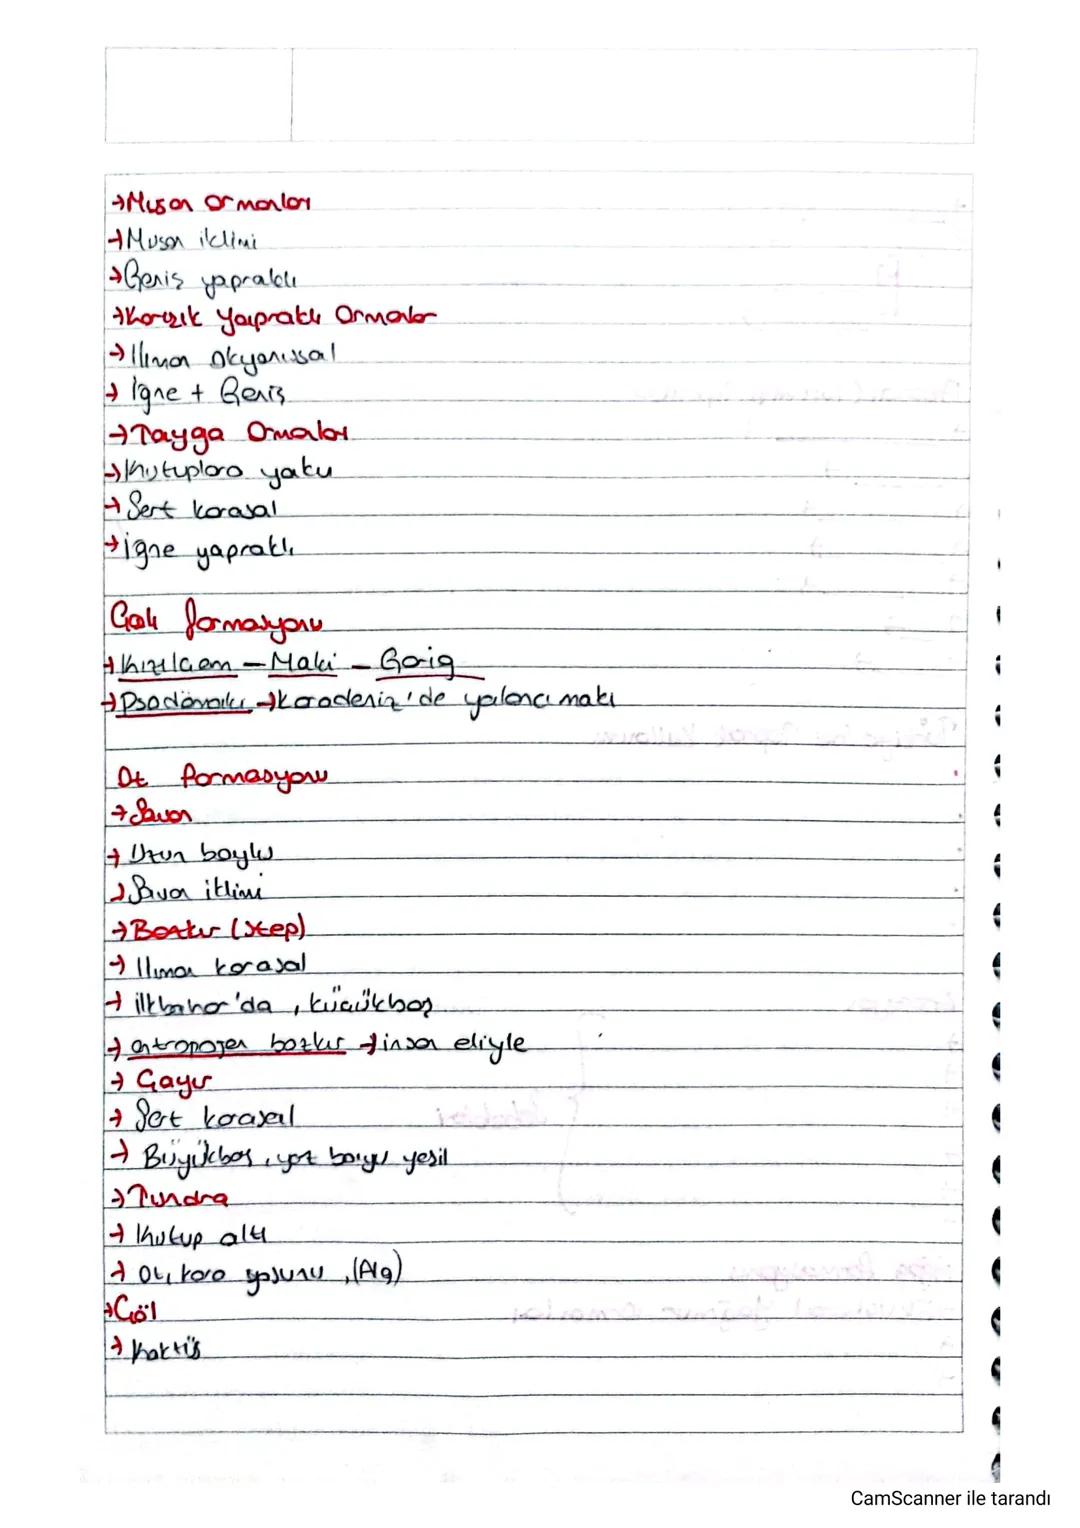 →Muson Ormanları
→Muson iklimi
→Geniş yapraklı
→Karışık Yapraklı Ormanlar
→Ilıman Okyanussal
→İğne + Geniş
→Tayga Ormanları
→Kutuplara yakın
→Sert karasal
→iğne yapraklı
Çalı formasyonu
→Kızılçam – Maki – Garig
→Psödomaki →Karadeniz'de yalancı maki
Ot formasyonu
→Savan
→Uzun boylu
→Savan iklimi
→Bozkır (step)
→Ilıman karasal
→ilkbahar'da, küçükbaş
→antropojen bozkır →insan eliyle
→Çayır
→Sert karasal
→Büyükbaş, yaz boyu yeşil
→Tundra
→Kutup altı
→Ot, kara yosunu, (Alg)
→Çöl
→Kaktüs
CamScanner ile tarandı